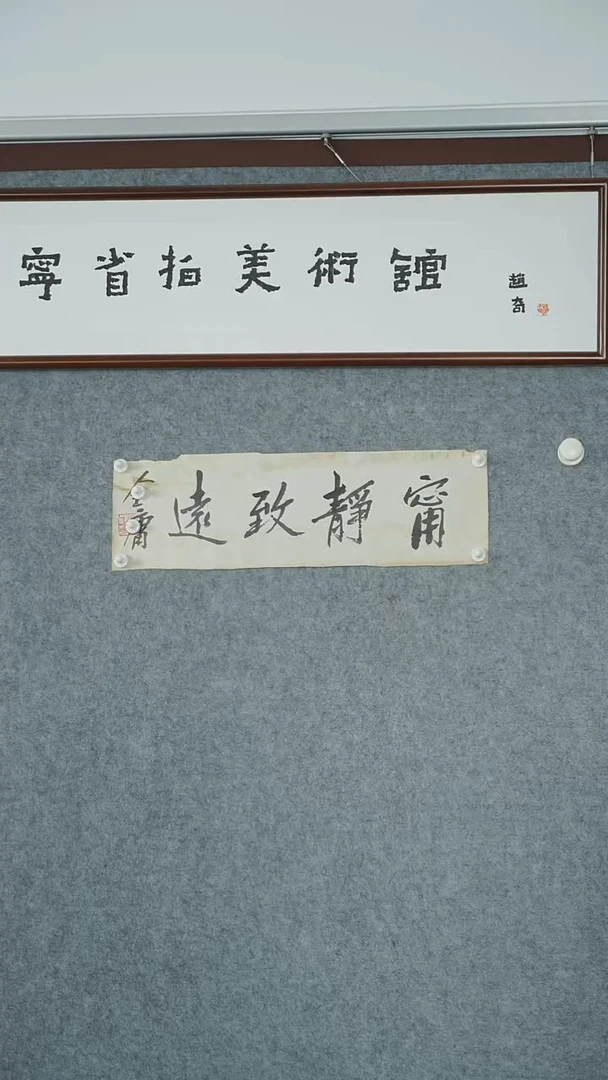 寧省拍美術舘
趙奇
甯靜致遠
金庸